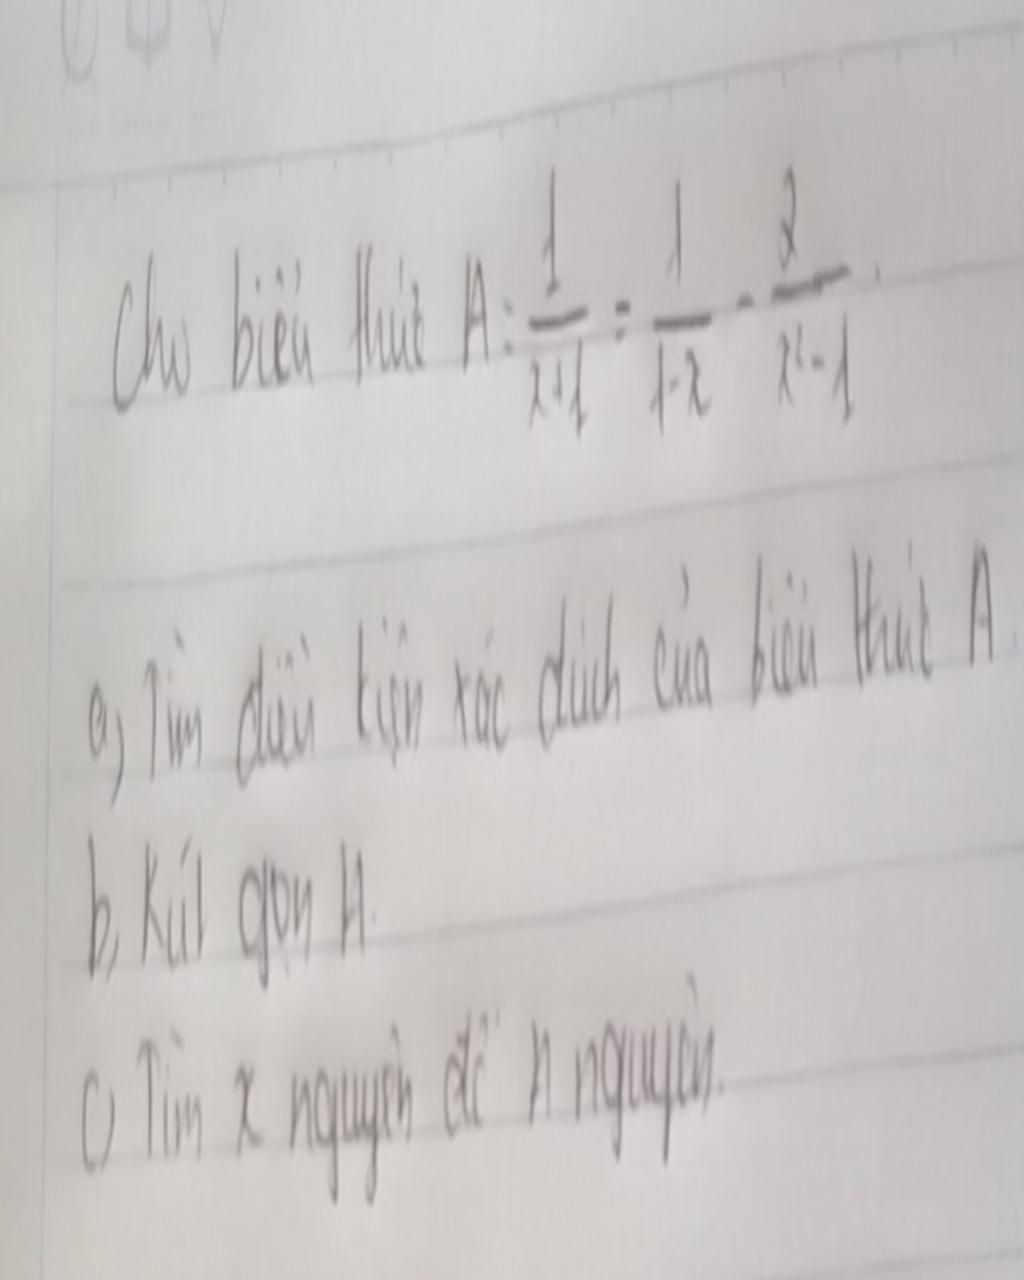 Cho biểu thức A = 1/(x+1) : 1/(1-x) - 2/(x²-1).
a) Tìm điều kiện xác định của biểu thức A.
b, Rút gọn A.
c) Tìm x nguyên để A nguyên.